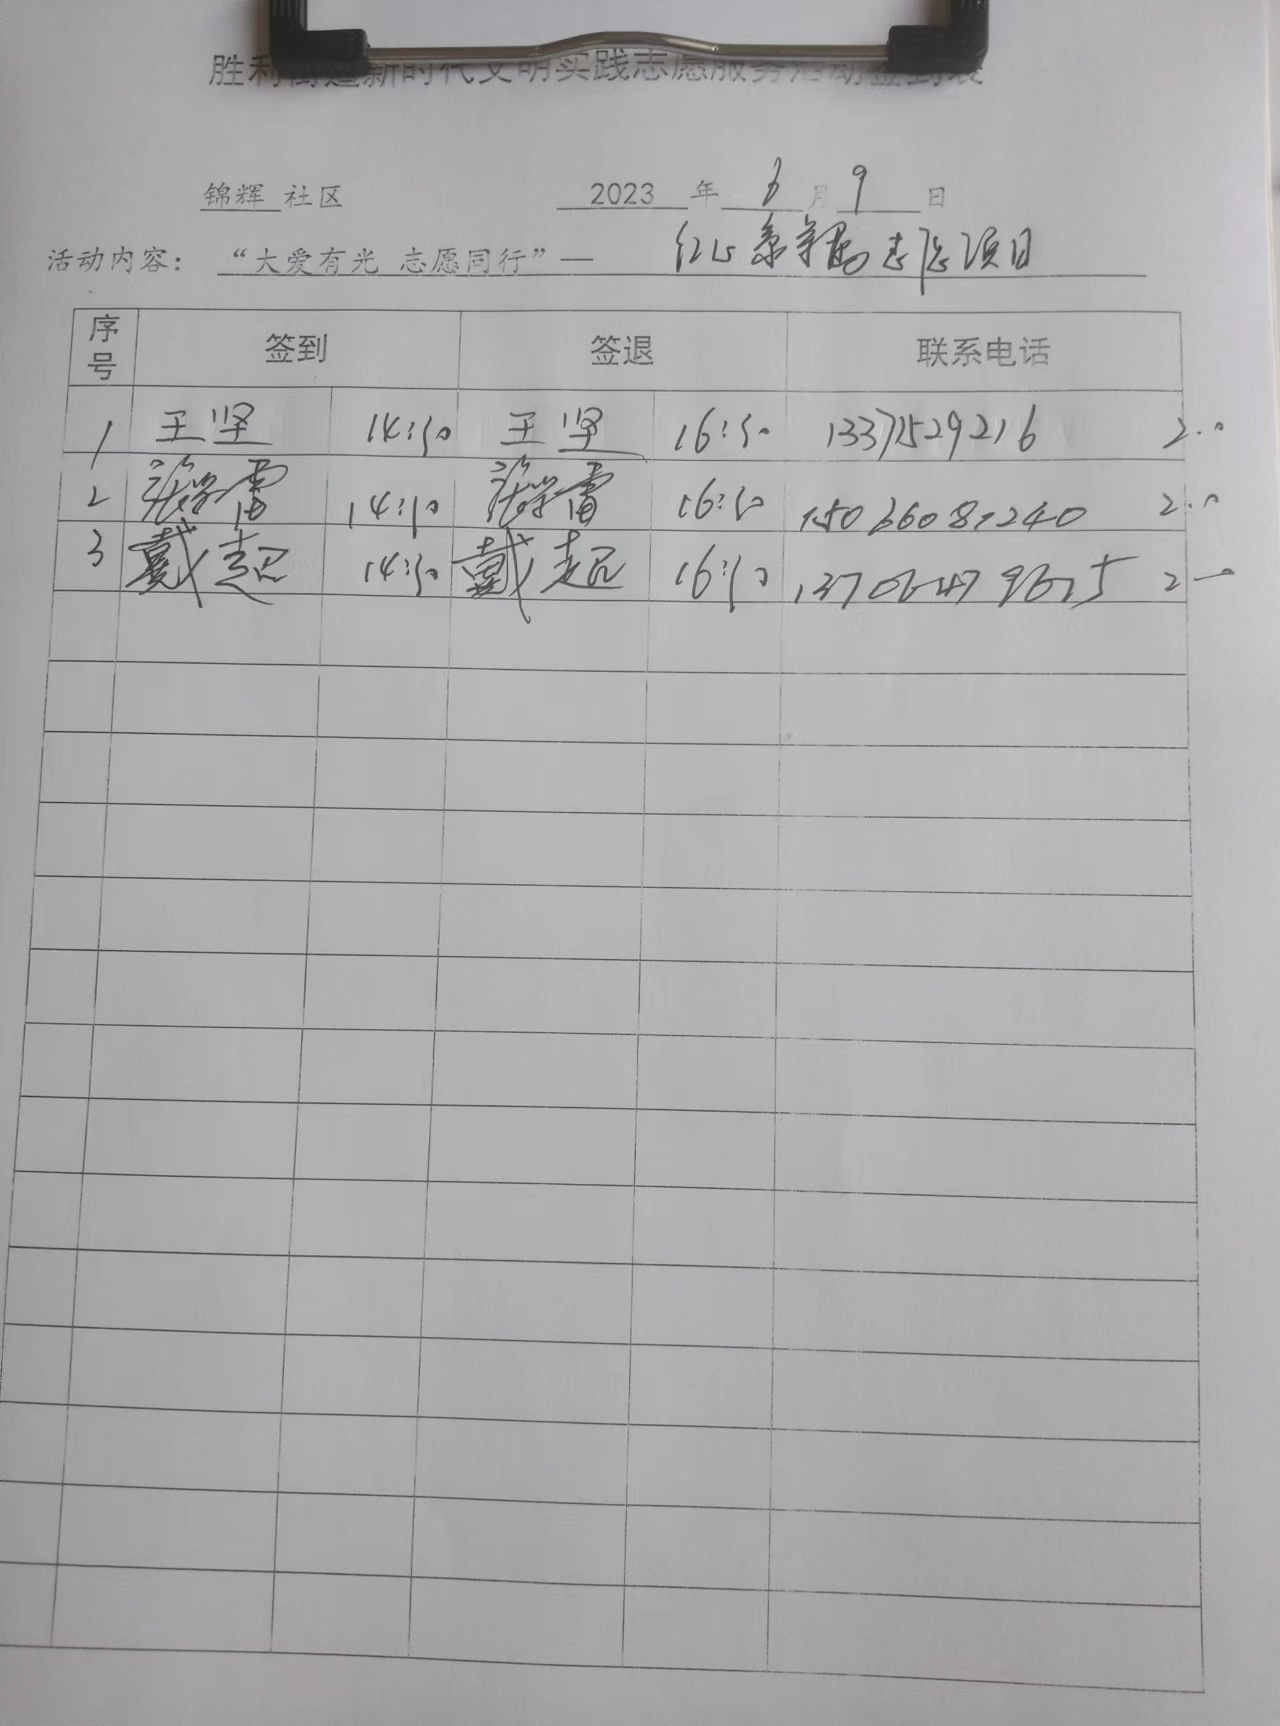 胜利街道新时代文明实践志愿服务活动签到表
锦辉 社区 2023 年 6 月 9 日
活动内容： “大爱有光 志愿同行”— 红心 志愿项目
序号 签到 签退 联系电话
1 王坚 14:50 王坚 16:50 13371529216 2.0
2 张学雷 14:50 张学雷 16:50 2.0
3 戴超 14:50 戴超 16:50 2.0